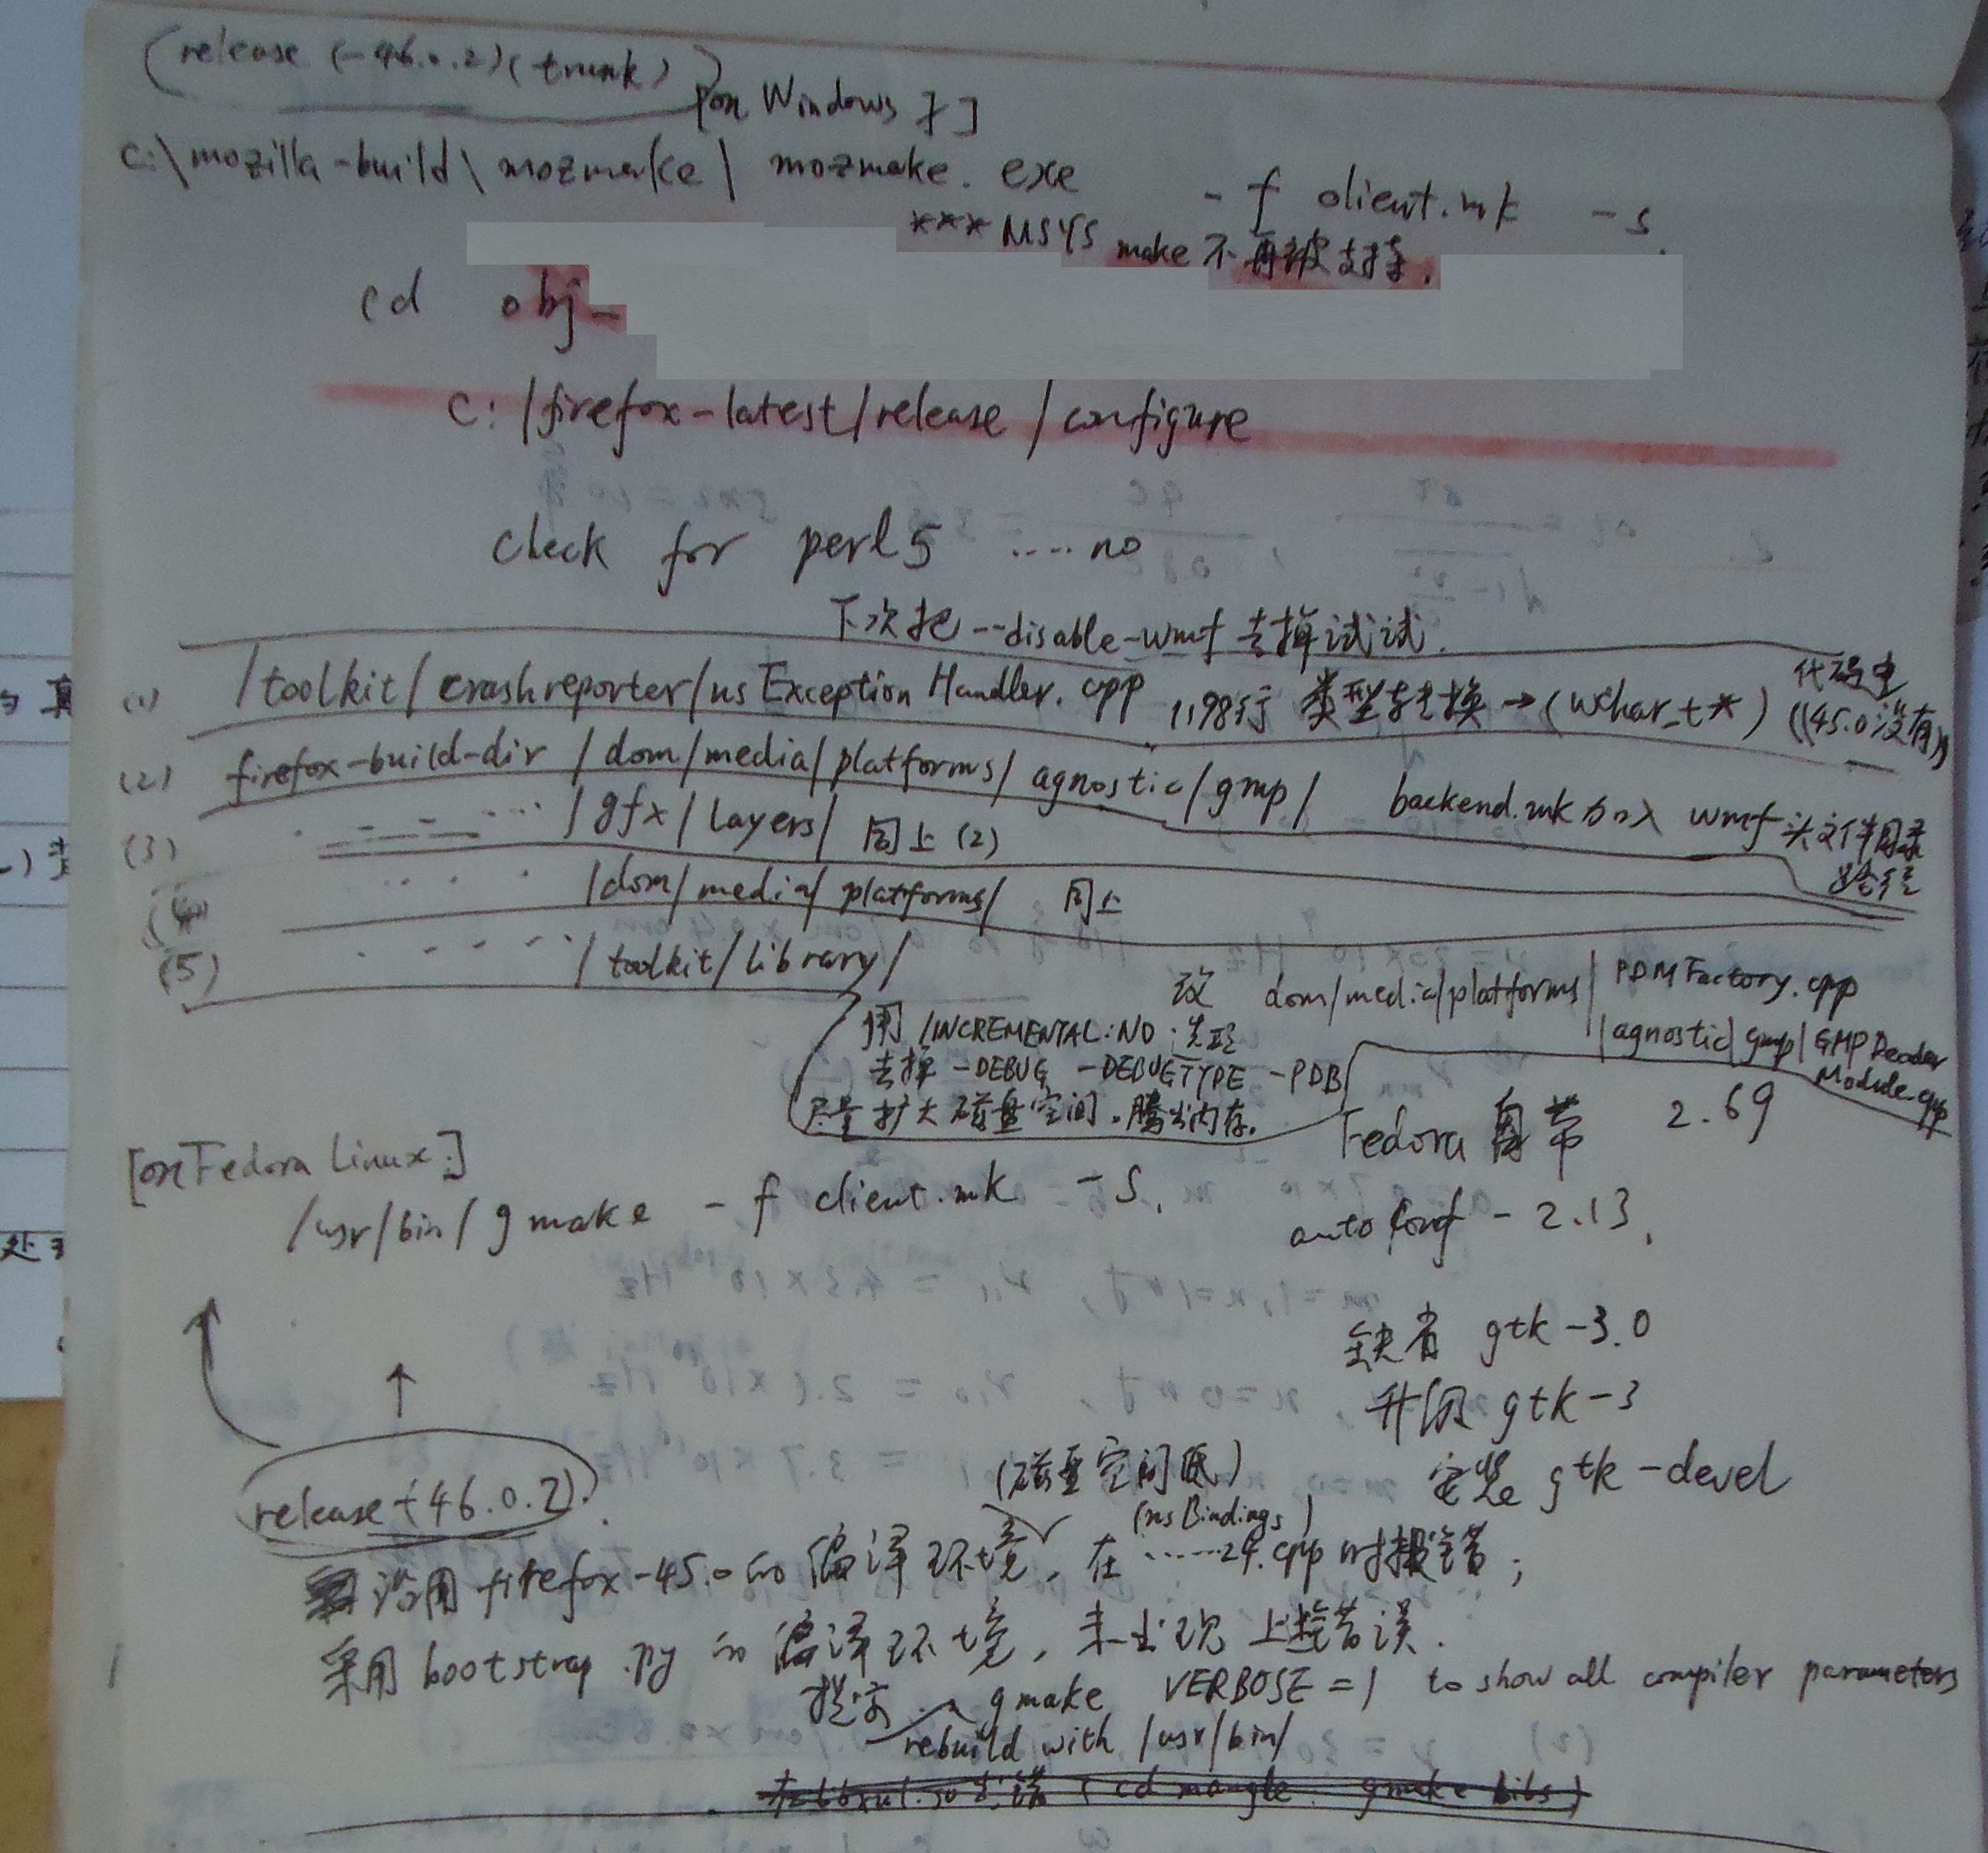 (release (-46.0.2)(trunk)
[on Windows 下]
c:\mozilla-build\mozmake\ mozmake.exe -f client.mk -s.
*** MSYS make 不再被支持.
cd obj-
c:/firefox-latest/release/configure
check for perl5 ....no
下次把 --disable-wmf 去掉试试.
(1) /toolkit/crashreporter/nsExceptionHandler.cpp 1198行 类型转换→(wchar_t*) 代码里
((45.0没有))
(2) firefox-build-dir /dom/media/platforms/agnostic/gmp/ backend.mk加入 wmf头文件目录
路径
(3) /gfx/layers/ 同上(2)
(4) /dom/media/platforms/ 同上
(5) /toolkit/library/
改 dom/media/platforms/ PDMFactory.cpp
/agnostic/gmp/GMPDecoder
Module.cpp
用 /INCREMENTAL:NO
去掉 -DEBUG -DEBUGTYPE -PDB
尽量扩大磁盘空间.腾出内存.
Fedora 自带 2.69
[on Fedora Linux:]
/usr/bin/gmake -f client.mk -s.
autoconf-2.13.
缺省 gtk-3.0
升级 gtk-3
安装 gtk-devel
release (46.0.2).
(磁盘空间低)
(nsBindings)
沿用firefox-45.0的编译环境,在......24.cpp时报错;
采用bootstrap.py的编译环境,未出现上述错误.
gmake VERBOSE=1 to show all compiler parameters
rebuild with /usr/bin/